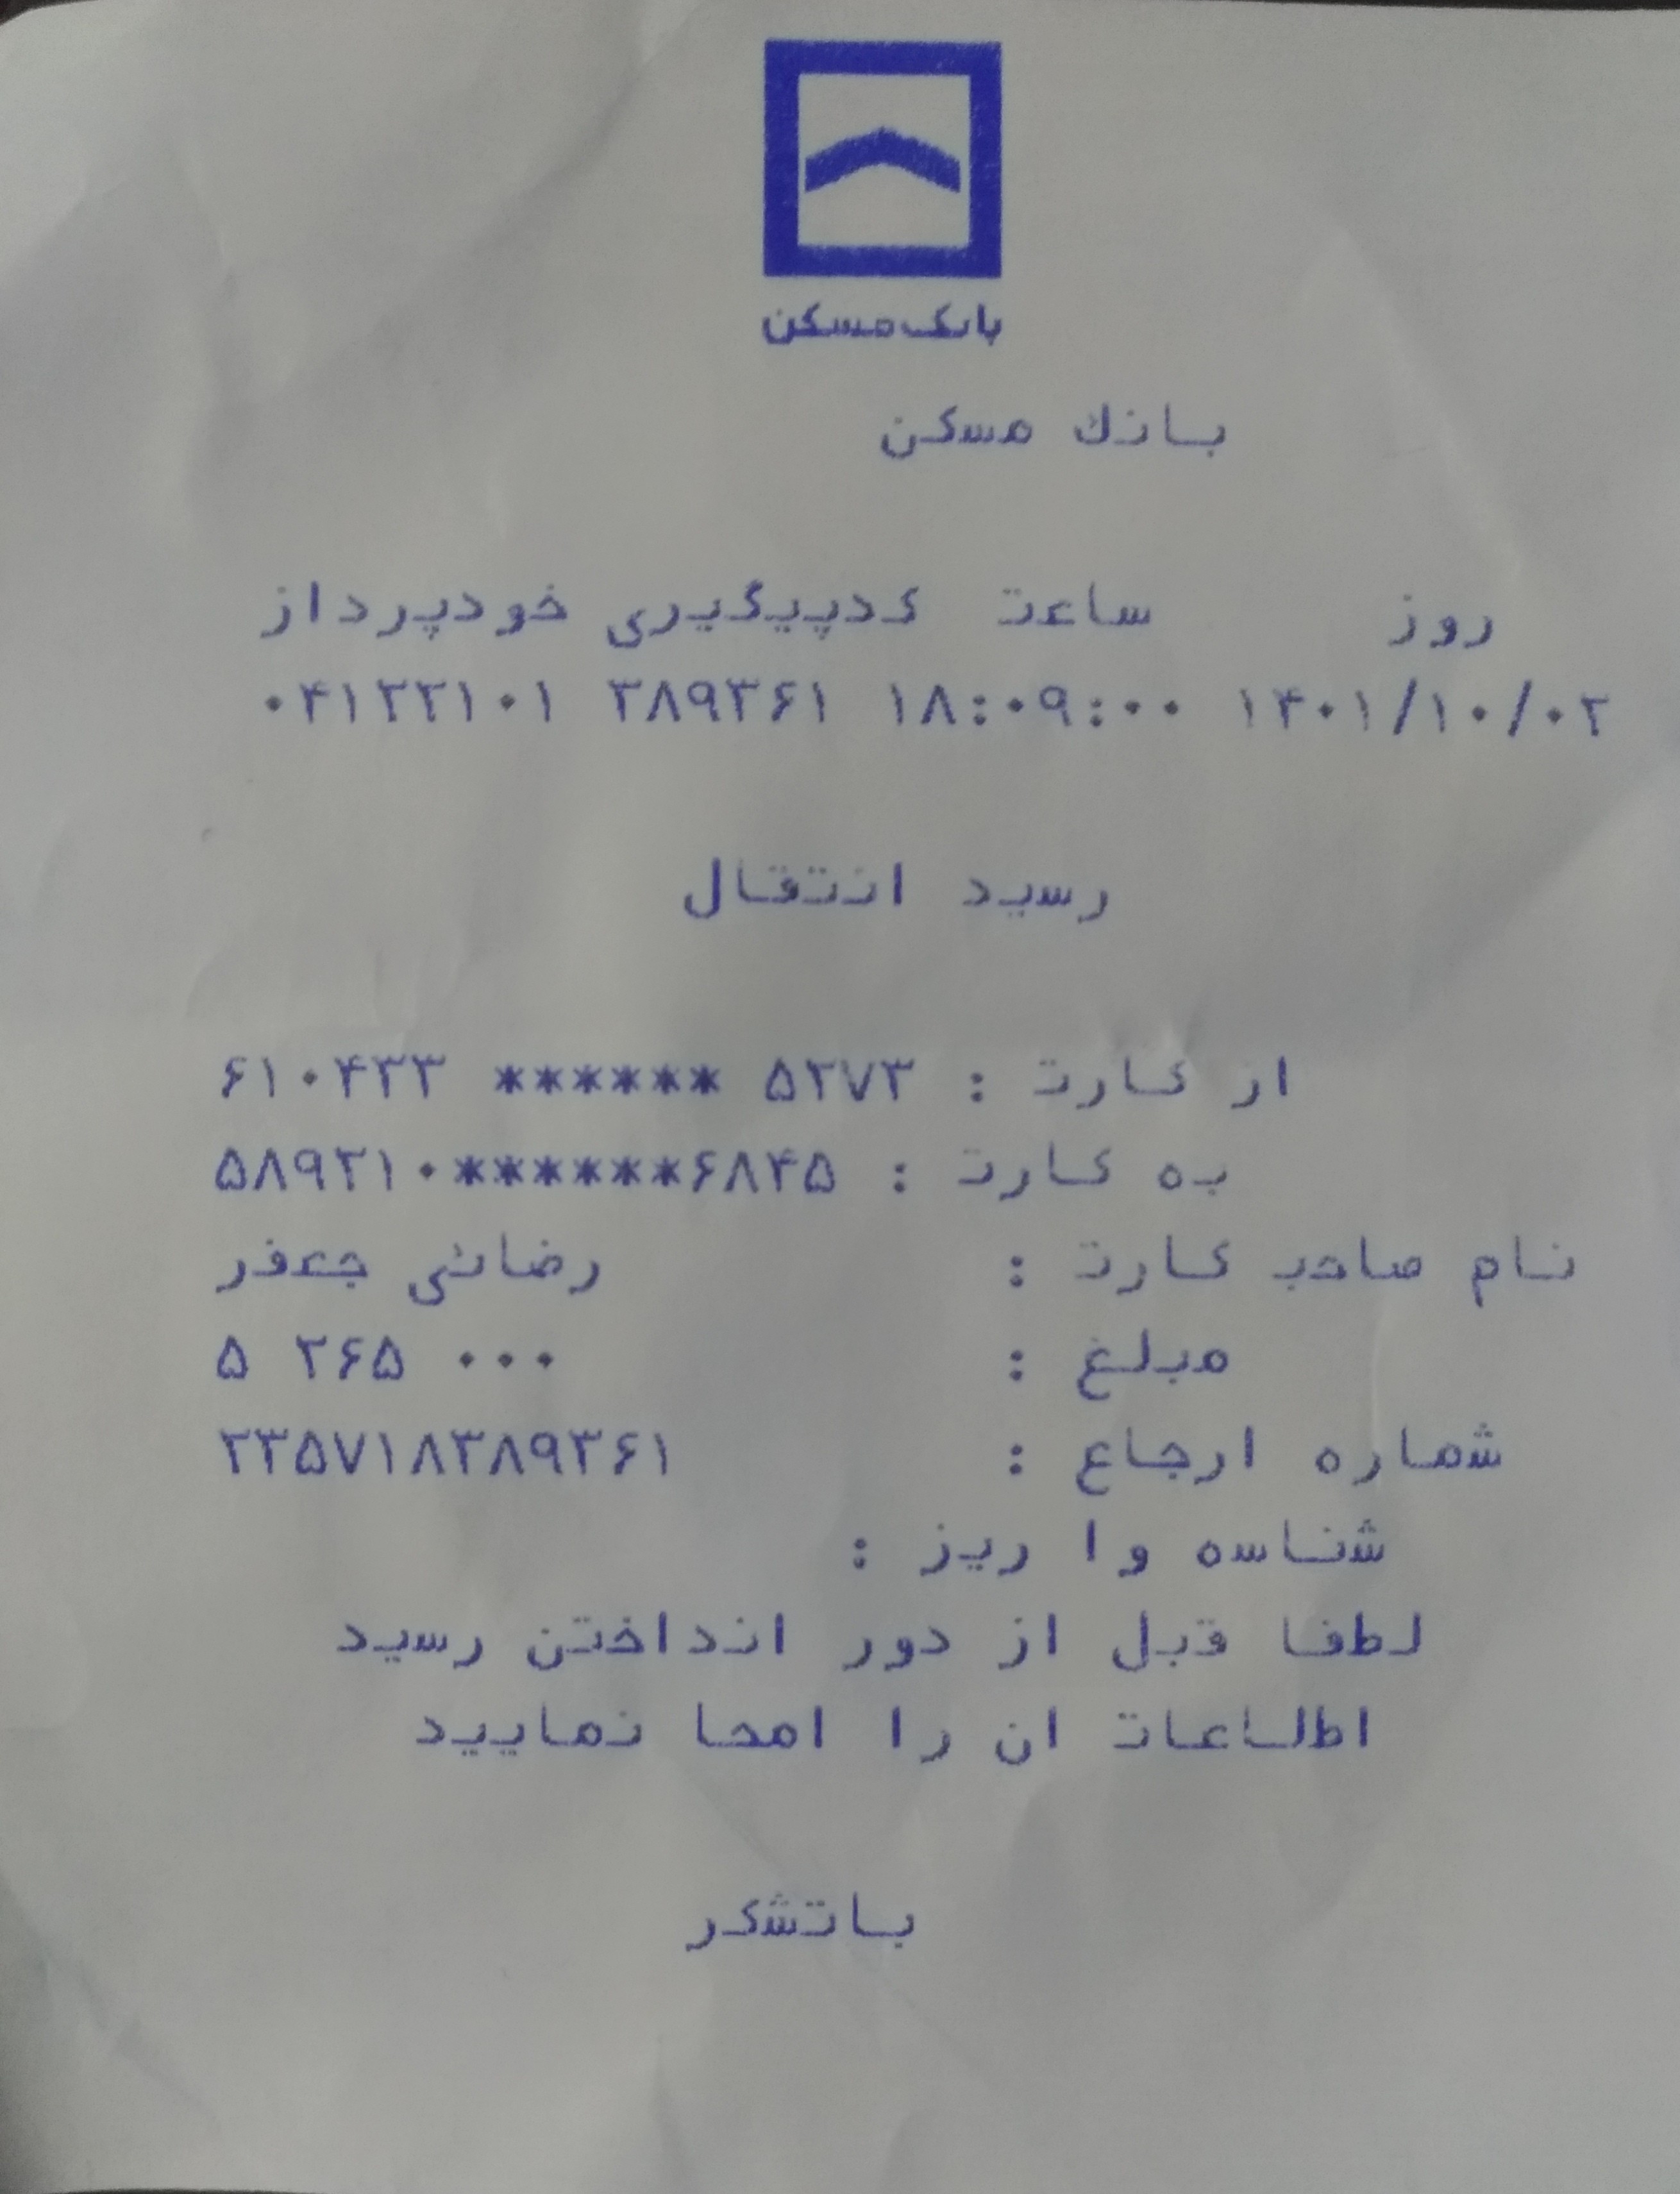 بانک مسکن
بانك مسكن
روز ساعت كدپيگيري خودپرداز
۱۴۰۱/۱۰/۰۲ ۱۸:۰۹:۰۰ ۳۸۹۳۶۱ ۰۴۱۲۲۱۰۱
رسيد انتقال
از كارت : ۶۱۰۴۳۳ ****** ۵۲۷۳
به كارت : ۵۸۹۲۱۰******۶۸۴۵
نام صاحب كارت : رضائي جعفر
مبلغ : ۵ ۲۶۵ ۰۰۰
شماره ارجاع : ۲۳۵۷۱۸۳۸۹۳۶۱
شناسه وا ريز :
لطفا قبل از دور انداختن رسيد
اطلاعات ان را امحا نماييد
باتشكر